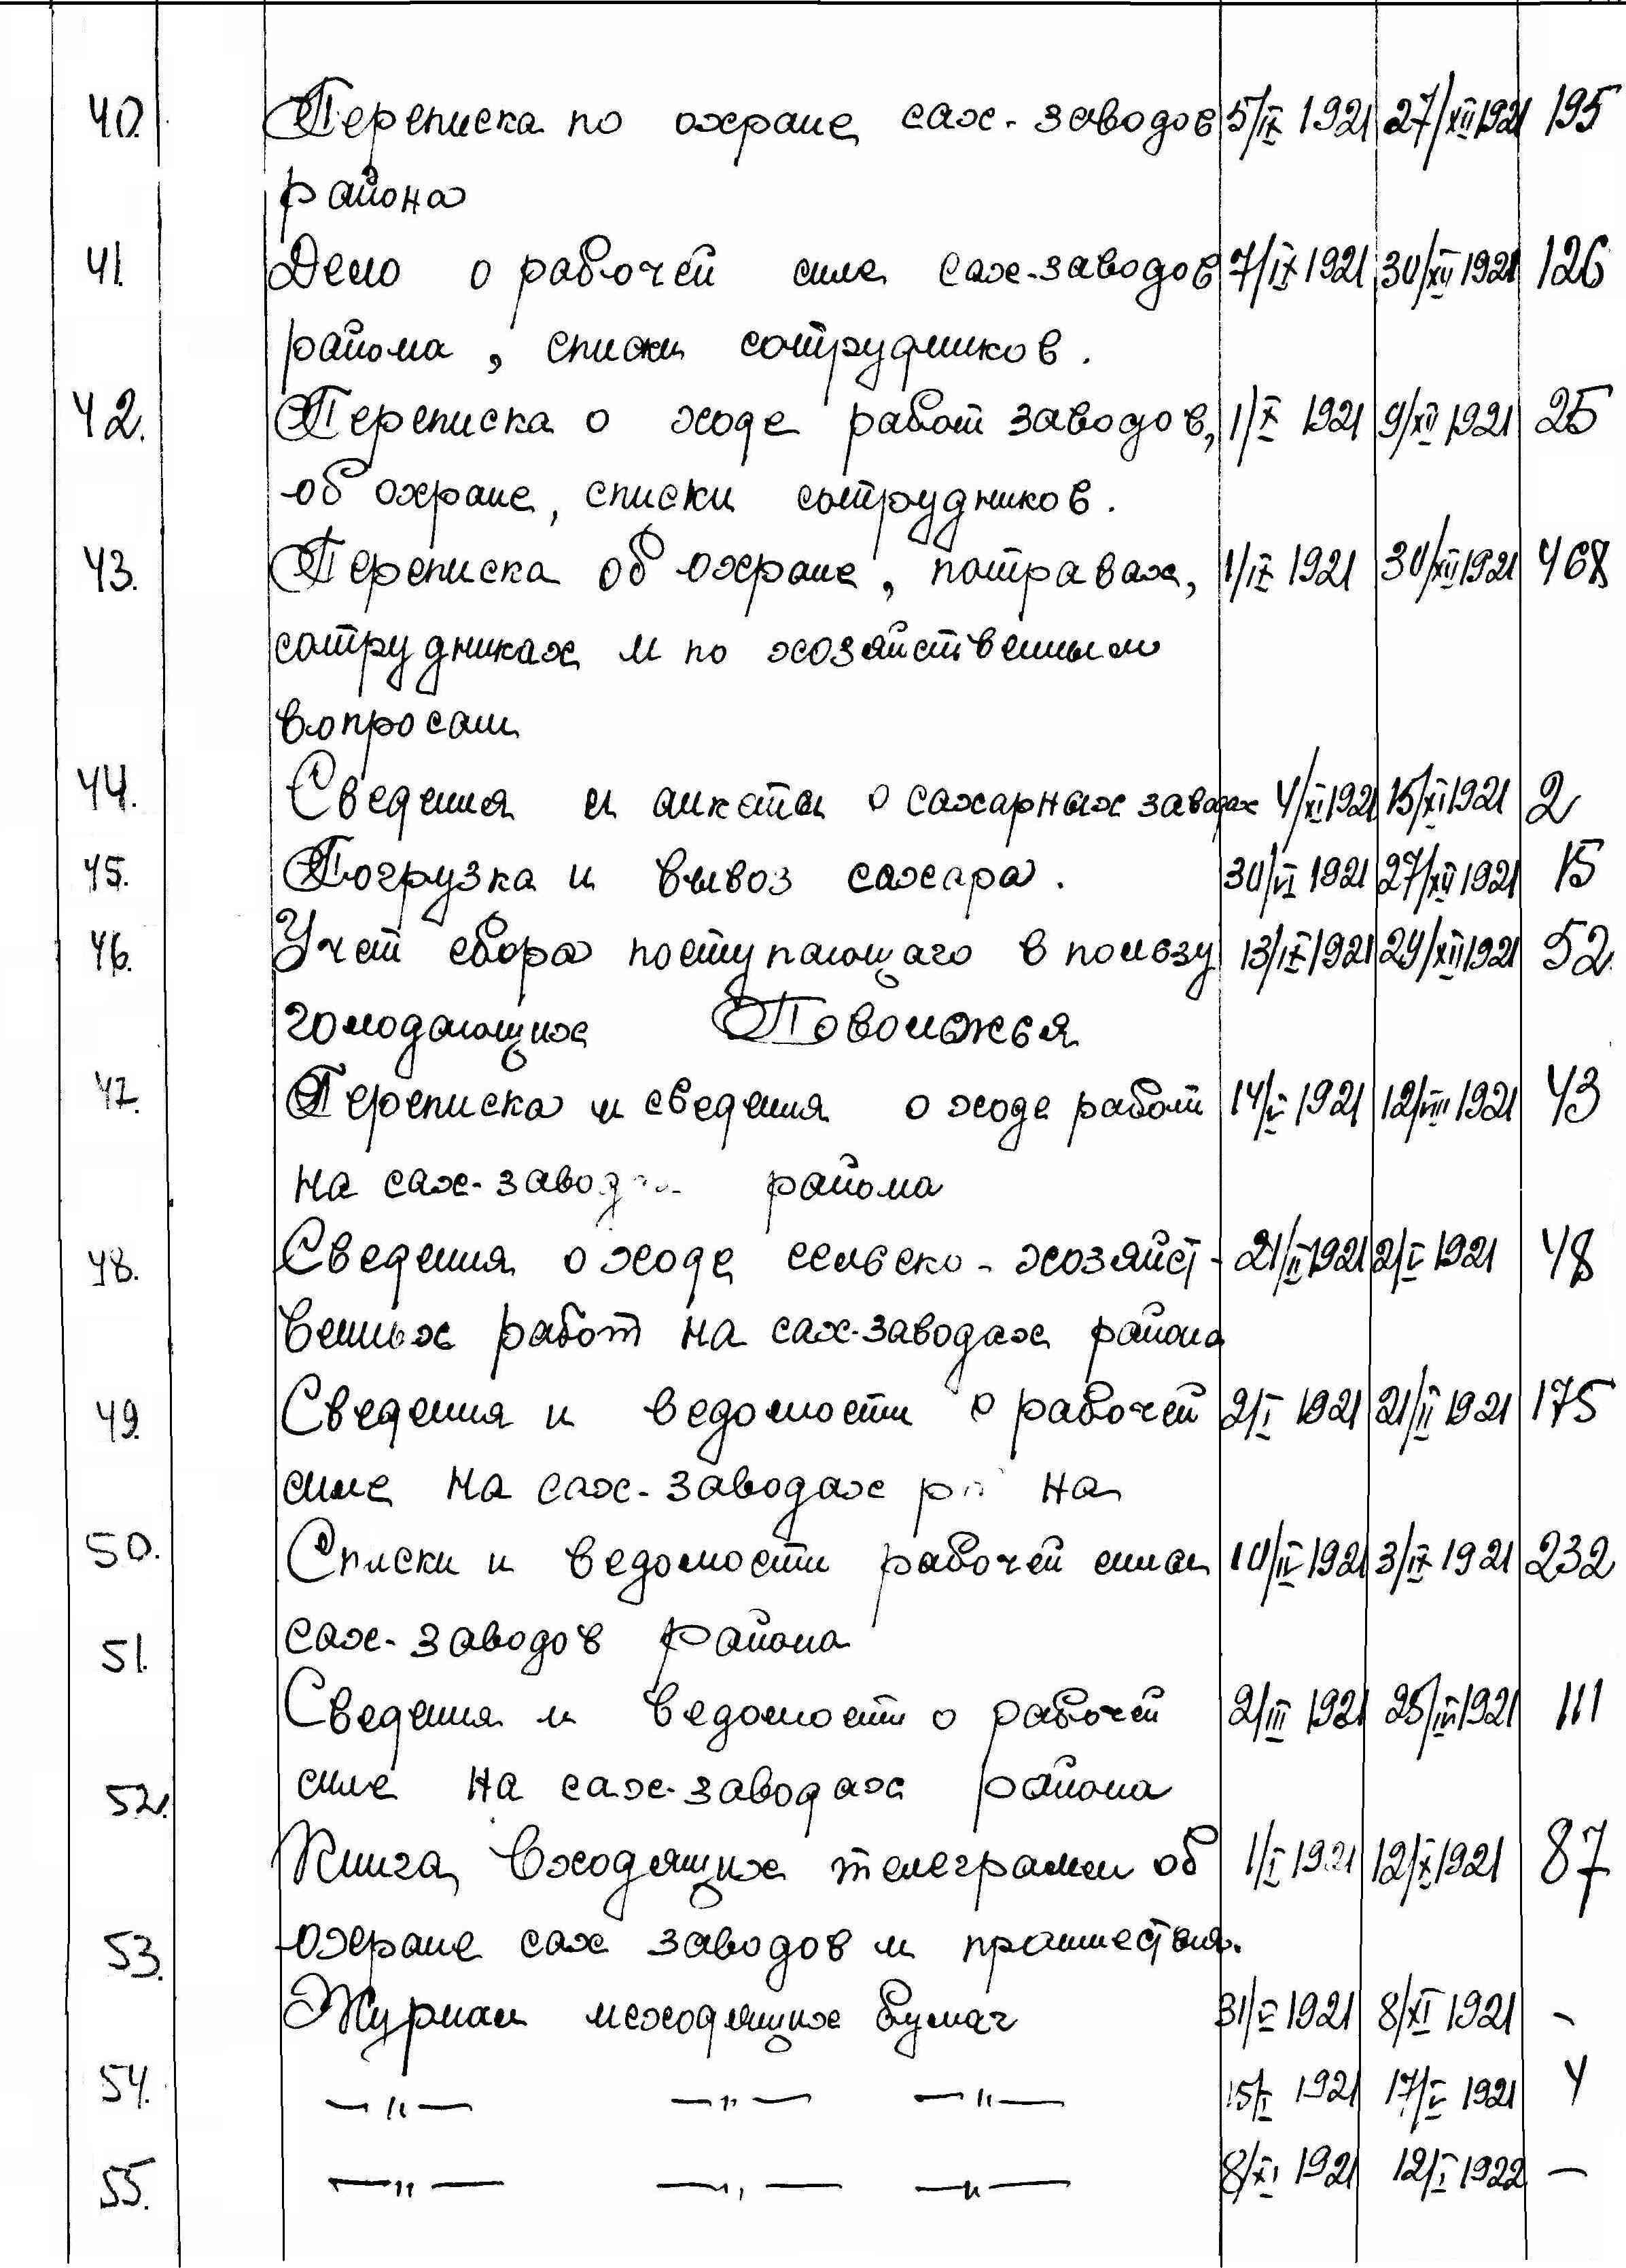 40. Переписка по охране сах-заводов 5/IX 1921 27/XII 1921 195
района
41. Дело о рабочей силе сах-заводов 7/IX 1921 30/XII 1921 126
района, списки сотрудников.
42. Переписка о ходе работ заводов, 1/X 1921 9/XII 1921 25
об охране, списки сотрудников.
43. Переписка об охране, потравах, 1/IX 1921 30/XII 1921 468
сотрудниках и по хозяйственным
вопросам
44. Сведения и анкеты о сахарных заводах 4/XI 1921 15/XI 1921 2
45. Погрузка и вывоз сахара. 30/VI 1921 27/XII 1921 15
46. Учет сбора поступающаго в пользу 13/IX 1921 29/XII 1921 52
голодающих Поволжья
47. Переписка и сведения о ходе работ 14/V 1921 12/VIII 1921 43
на сах-заводах района
48. Сведения о ходе сельско-хозяйст- 21/II 1921 2/V 1921 48
венных работ на сах-заводах района
49. Сведения и ведомости о рабочей 2/I 1921 21/II 1921 175
силе на сах-заводах района
50. Списки и ведомости рабочей силы 10/IV 1921 3/IX 1921 232
сах-заводов района
51.
Сведения и ведомости о рабочей 2/III 1921 25/IV 1921 111
силе на сах-заводах района
52.
Книга входящих телеграмм об 1/I 1921 12/X 1921 87
охране сах заводов и происшествия.
53.
Журнал исходящих бумаг 31/V 1921 8/XI 1921 -
54. —"— —"— —"— 15/I 1921 17/V 1921 4
55. —"— —"— —"— 8/XI 1921 12/I 1922 —